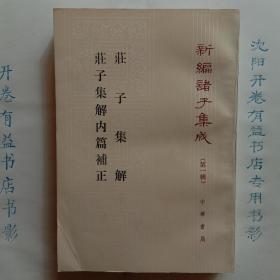 新編諸子集成
（第一輯）
中華書局
莊子集解
莊子集解內篇補正
沈阳开卷有益书店专用书影
开卷有益书店书影